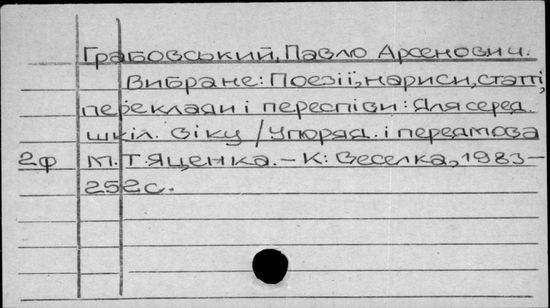 Грабовський, Павло Арсенович.
Вибране: Поезії, нариси, статті,
переклади і переспіви: Для серед.
шкіл. віку / Упоряд. і передмова
2ф М. Т. Яценка. – К: Веселка, 1983 –
252с.